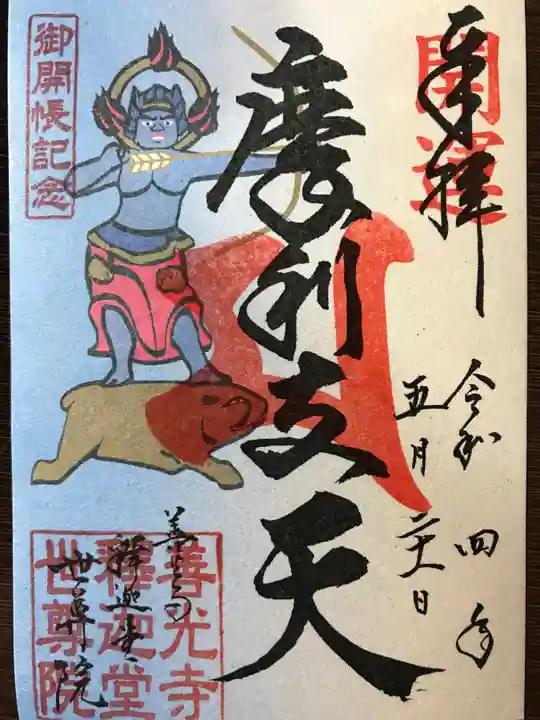 開運
奉拝
令和四年
五月二十一日
摩利支天
御開帳記念
善光寺
釋迦堂
世尊院
善光寺
釋迦堂
世尊院